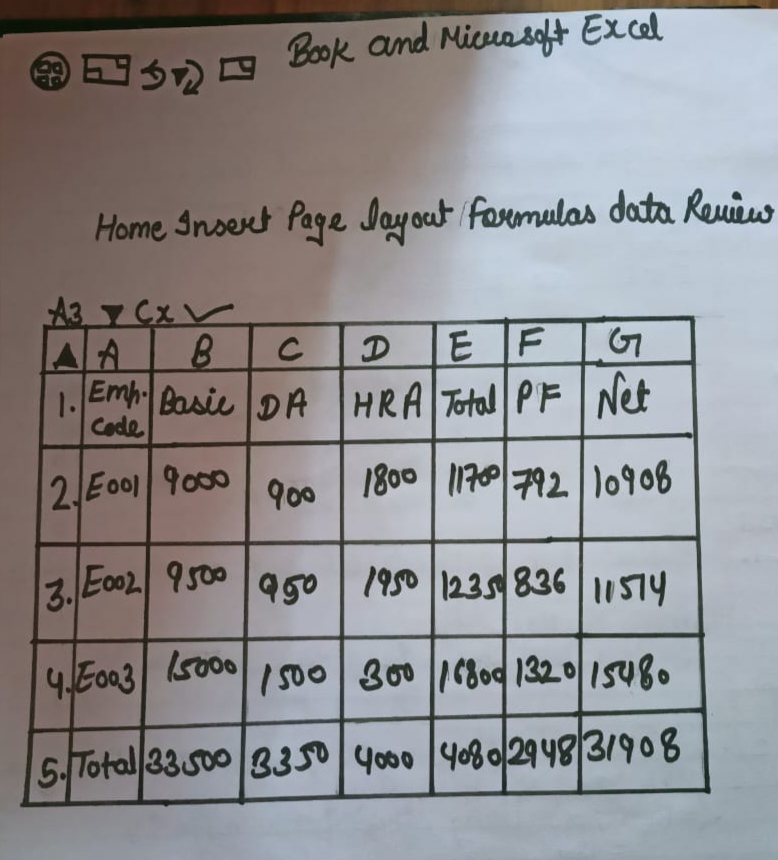 Book and Microsoft Excel
Home Insert Page layout formulas data Review
A3 ▼ Cx ✓
▲ A B C D E F G
1. Emp. Code Basic DA HRA Total PF Net
2. E001 9000 900 1800 11700 792 10908
3. E002 9500 950 1950 12350 836 11514
4. E003 15000 1500 300 16800 1320 15480
5. Total 33500 3350 4000 4080 2948 31908